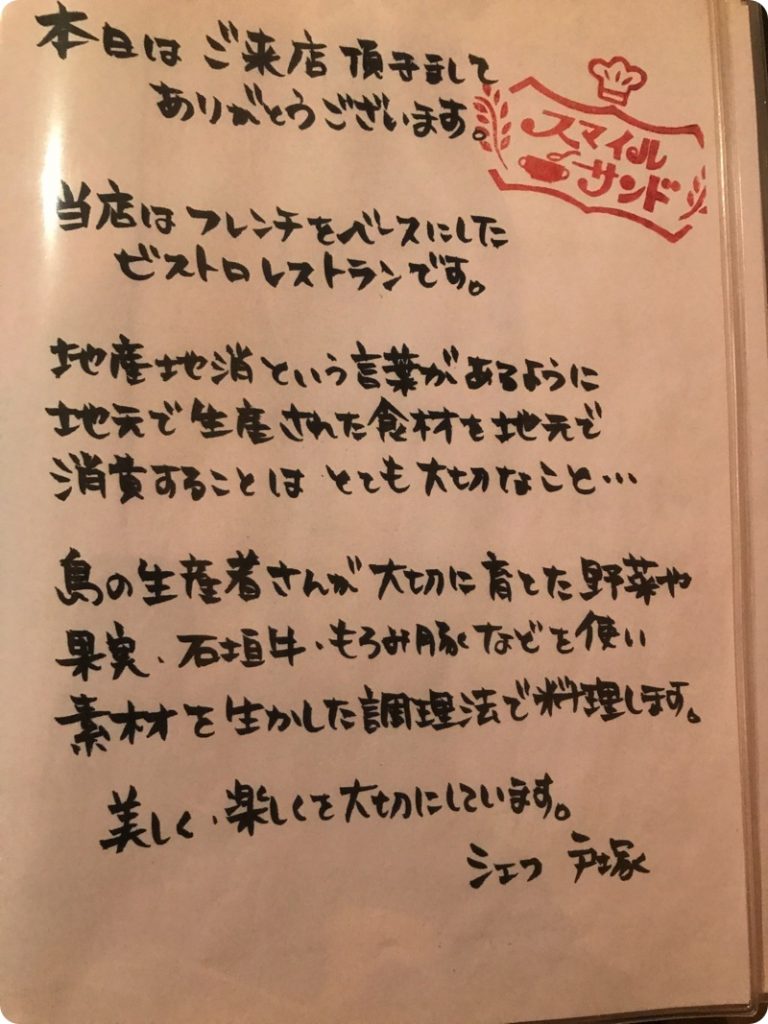 本日は ご来店 頂きまして
ありがとうございます。
スマイル
サンド
当店は フレンチをベースにした
ビストロレストランです。
地産地消 という 言葉が あるように
地元で 生産された食材を地元で
消費することは とても 大切なこと…
島の生産者さんが 大切に育てた野菜や
果実、石垣牛・もろみ豚などを使い
素材を生かした調理法で料理します。
美しく、楽しくを大切にしています。
シェフ 戸塚